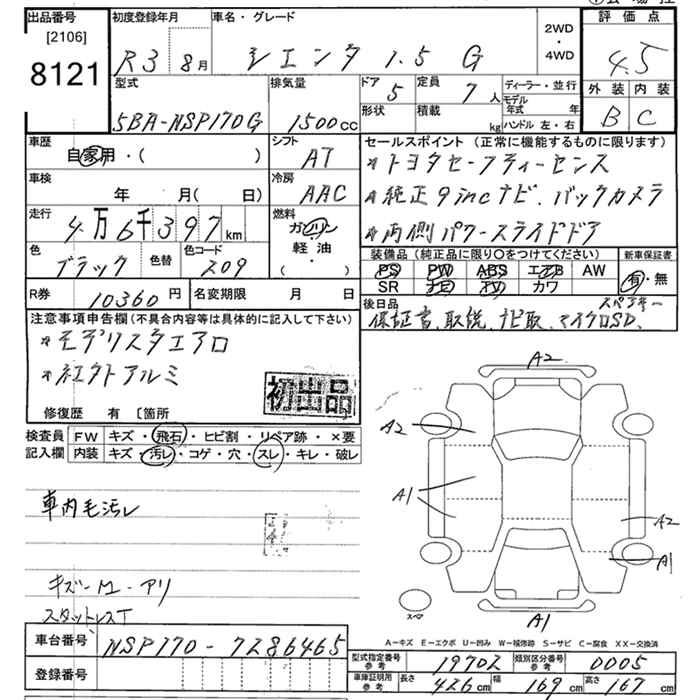 出品番号 初度登録年月 車名・グレード 2WD・4WD 評価点
[2106]
8121 R3 8月 シエンタ 1.5 G 4.5
型式 排気量 ドア 5 定員 7人 ディーラー・並行 外装 内装
5BA-NSP170G 1500cc 形状 積載 kg モデル年式 年 ハンドル 左・右 B C
車歴 自家用・( ) シフト AT セールスポイント(正常に機能するものに限ります)
*トヨタセーフティーセンス
車検 年 月( 日) 冷房 AAC *純正9incナビ、バックカメラ
走行 4万6千397km 燃料 ガソリン *両側パワースライドドア
色 ブラック 色替 色コード 209 軽油 ( ) 装備品(純正品に限り○をつけてください) 新車保証書
PS PW ABS エアB AW 有・無
SR ナビ TV カワ
R券 10360円 名変期限 月 日 後日品 スペアキー
保証書、取説、ナビ取、マイクロSD、
注意事項申告欄(不具合内容等は具体的に記入して下さい)
*モデリスタエアロ
*社外アルミ
初出品
修復歴 有 〔箇所
検査員 FW キズ・飛石・ヒビ割・リペア跡・×要
記入欄 内装 キズ・汚レ・コゲ・穴・スレ・キレ・破レ
A2
A2
A1
A2
A1
A1
スペア
車内毛汚レ
キズーM-アリ
スタットレスT
A-キズ E-エクボ U-凹み W-補修跡 S-サビ C-腐食 XX-交換済
車台番号 NSP170-7286465
登録番号
型式指定番号 参考 19702 類別区分番号 参考 0005
車庫証明用 参考 長さ 426cm 幅 169cm 高さ 167cm